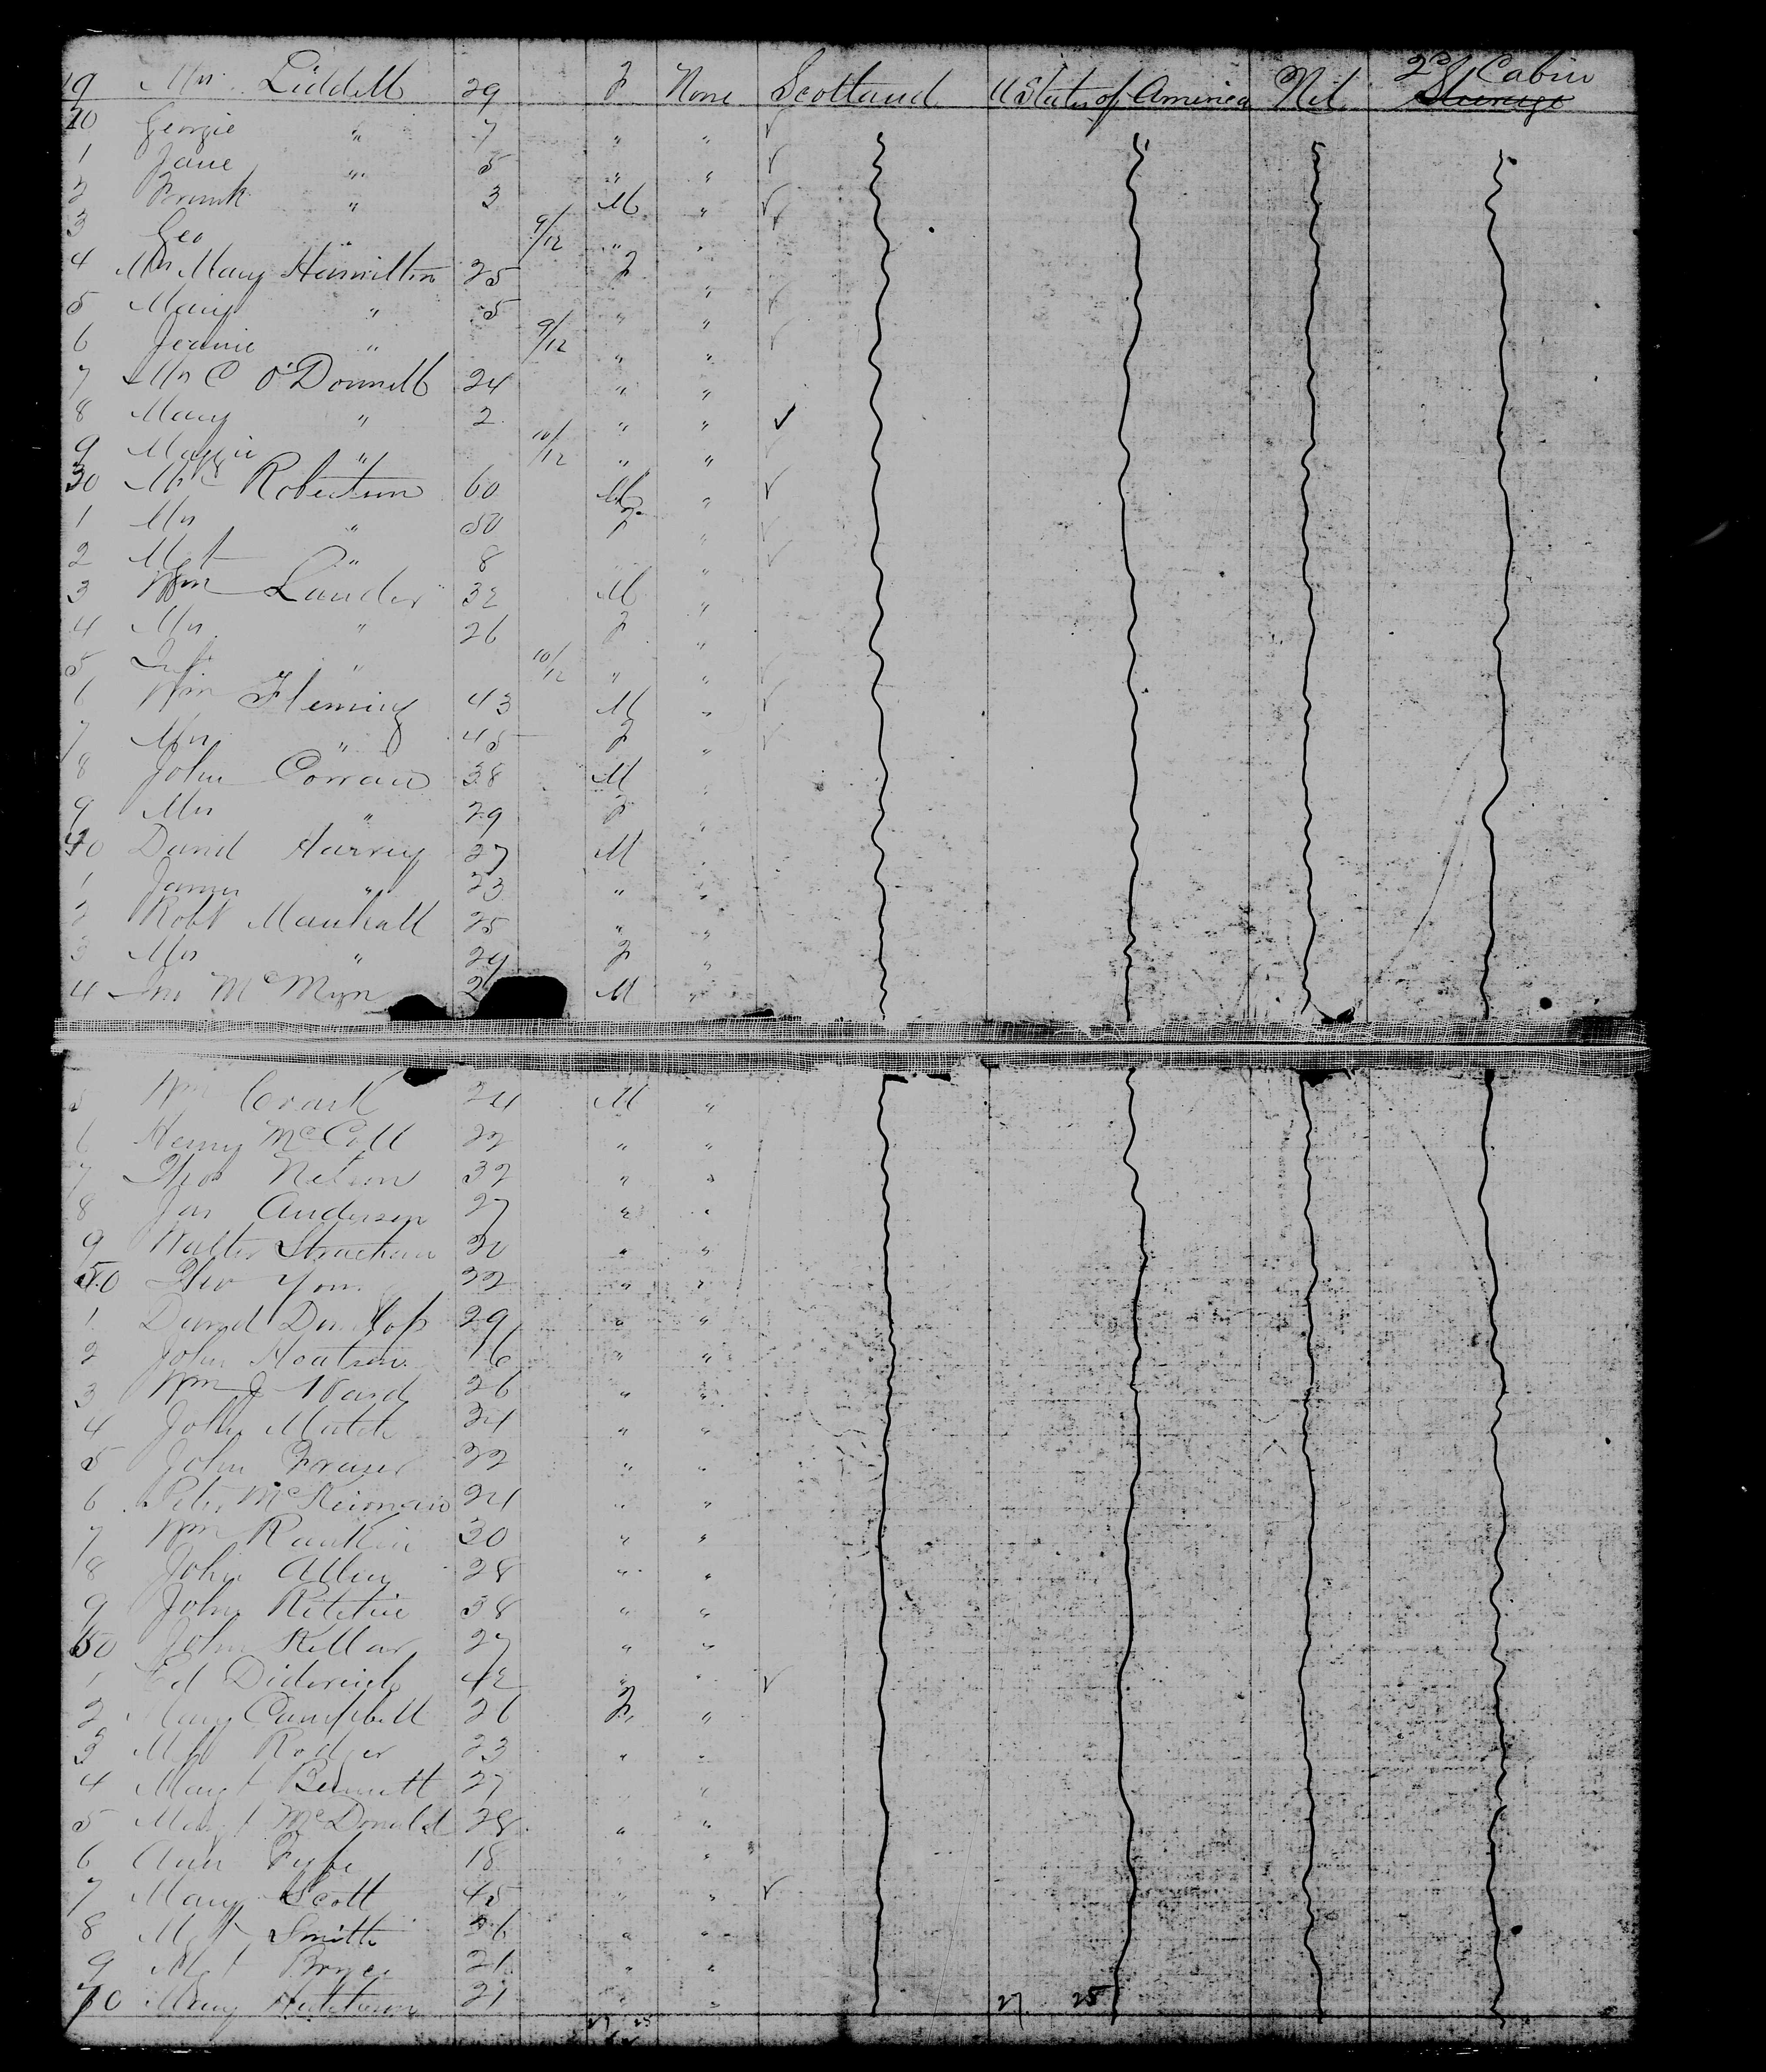 19 Mrs. Liddell 29 F None Scotland U States of America Nil 2nd Cabin Steerage
20 Georgie " 7 " "
1 Jane " 5 " "
2 Frank " 3 M "
3 Geo " 9/12 " "
4 Mrs Mary Hamilton 25 F "
5 Mary " 5 " "
6 Jeanie " 9/12 " "
7 Mrs C O'Donnell 24 " "
8 Mary " 2 " "
9 Maggie " 10/12 " "
30 Robertson 60 M "
1 Mrs " 50 F "
2 Mgt " 8 "
3 Wm Lauder 32 M "
4 Mrs " 26 F "
5 Inf " 10/12 " "
6 Wm Fleming 43 M "
7 Mrs " 45 F "
8 John Corran 38 M "
9 Mrs " 29 F "
40 David Harvey 27 M "
1 James " 23 " "
2 Robt Marshall 25 " "
3 Mrs " 24 F "
4 McMyn M "
5 Wm 24 M "
6 Henry McColl 22 " "
7 Thos Nelson 32 " "
8 Jas Anderson 27 " "
9 Walter Strachan 30 " "
50 22 " "
1 David Dunlop 29 " "
2 John 16 " "
3 Wm J Ward 26 " "
4 John Mutch 24 " "
5 John Fraser 22 " "
6 Peter McKeirnan 24 " "
7 Wm Rankin 30 " "
8 John Allen 28 " "
9 John Ritchie 38 " "
60 John Kellar 27 " "
1 Ed Diderich 42 " "
2 Mary Campbell 26 F "
3 Rodger 23 " "
4 Margt Bennett 27 "
5 Margt McDonald 28 " "
6 Ann Fyfe 18 "
7 Mary Scott 45 " "
8 Mgt Smith 26 " "
9 Mgt Bryce 21 " "
70 Mary Hutchison 21 " " 27 25
27 25